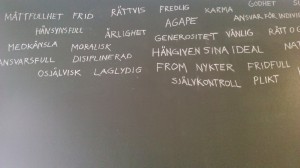 MÅTTFULLHET FRID RÄTTVIS FREDLIG KARMA GODHET
HÄNSYNSFULL ÄRLIGHET AGAPE ANSVAR FÖR
MEDKÄNSLA MORALISK GENEROSITET VÄNLIG RÄTT O
ANSVARSFULL DISIPLINERAD HÄNGIVEN SINA IDEAL NAT
OSJÄLVISK LAGLYDIG FROM NYKTER FRIDFULL
SJÄLVKONTROLL PLIKT